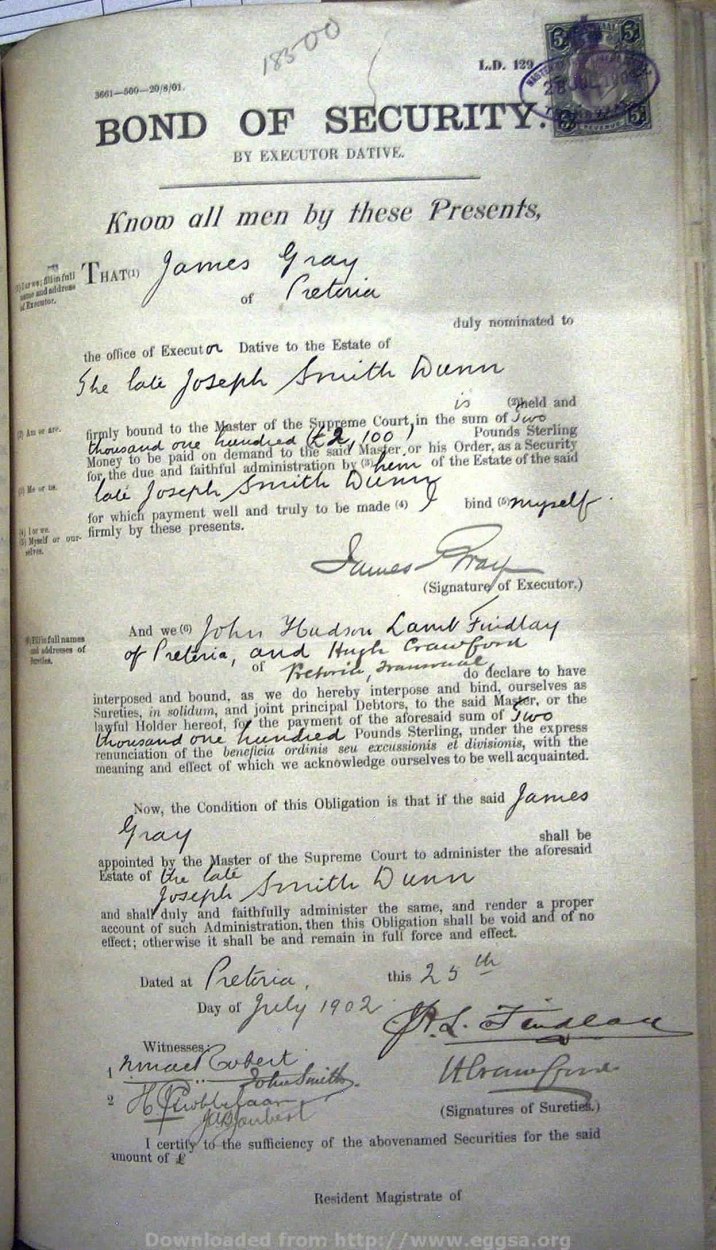 18500
L.D. 129
3661—500—20/8/01.
BOND OF SECURITY.
BY EXECUTOR DATIVE.
Know all men by these Presents,
(1) I or we; fill in full
name and address
of Executor.
THAT(1) James Gray
of Pretoria
duly nominated to
the office of Executor Dative to the Estate of
The late Joseph Smith Dunn
is (2)held and
(2) Am or are.
firmly bound to the Master of the Supreme Court, in the sum of Two
thousand one hundred (£2,100) Pounds Sterling
Money to be paid on demand to the said Master, or his Order, as a Security
for the due and faithful administration by (3) him of the Estate of the said
(3) Me or us.
late Joseph Smith Dunn
for which payment well and truly to be made (4) I bind (5) myself
(4) I or we.
(5) Myself or our-
selves.
firmly by these presents.
James Gray
(Signature of Executor.)
(6) Fill in full names
and addresses of
Sureties.
And we (6) John Hudson Lamb Findlay
of Pretoria, and Hugh Crawford
of Pretoria, Transvaal, do declare to have
interposed and bound, as we do hereby interpose and bind, ourselves as
Sureties, in solidum, and joint principal Debtors, to the said Master, or the
lawful Holder hereof, for the payment of the aforesaid sum of Two
thousand one hundred Pounds Sterling, under the express
renunciation of the beneficia ordinis seu excussionis et divisionis, with the
meaning and effect of which we acknowledge ourselves to be well acquainted.
Now, the Condition of this Obligation is that if the said James
Gray shall be
appointed by the Master of the Supreme Court to administer the aforesaid
Estate of the late
Joseph Smith Dunn
and shall duly and faithfully administer the same, and render a proper
account of such Administration, then this Obligation shall be void and of no
effect; otherwise it shall be and remain in full force and effect.
Dated at Pretoria, this 25th
Day of July 1902
J.H.L. Findlay
Witnesses:
1
John Smith
HCrawford
2
(Signatures of Sureties.)
I certify to the sufficiency of the abovenamed Securities for the said
amount of £
Resident Magistrate of
Downloaded from http://www.eggsa.org